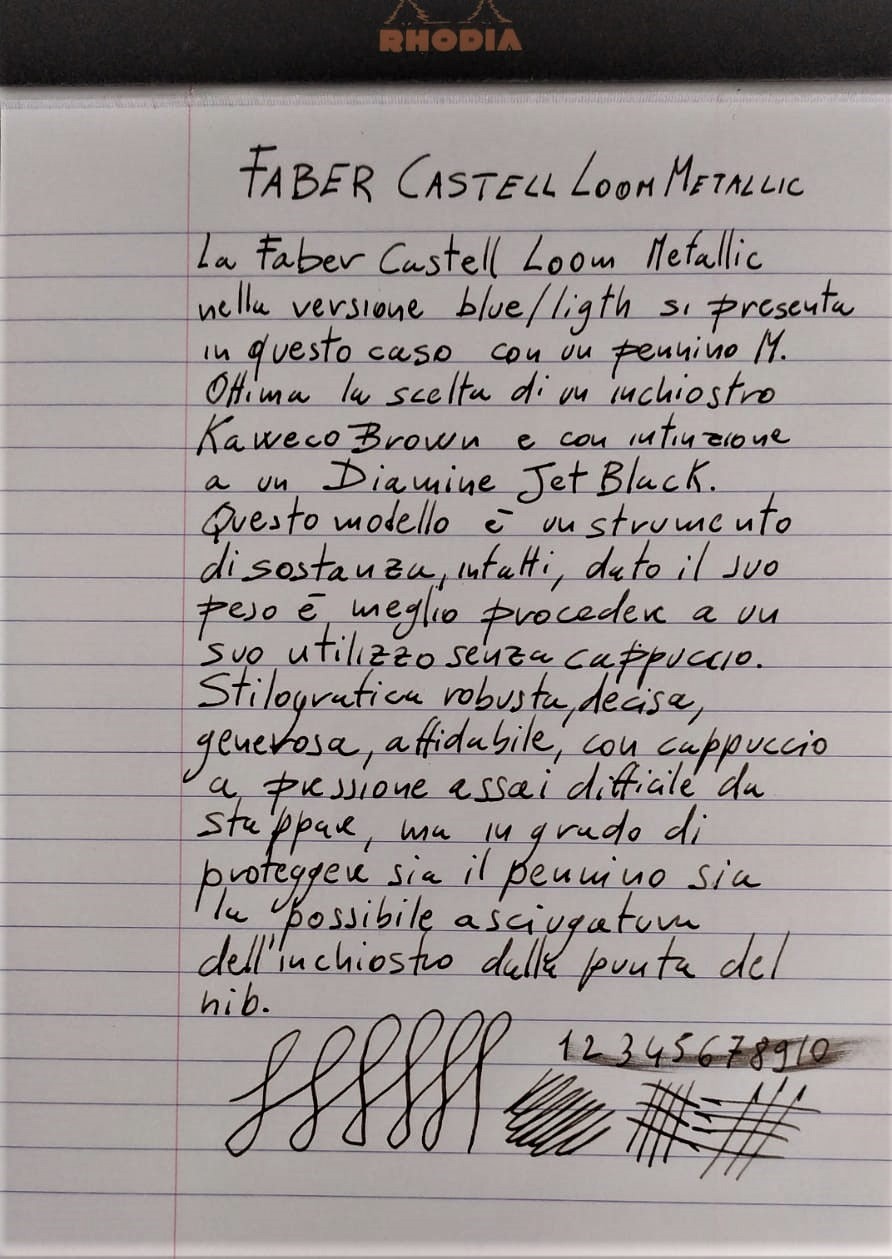 RHODIA
FABER CASTELL LOOM METALLIC
La Faber Castell Loom Metallic
nella versione blue/ligth si presenta
in questo caso con un pennino M.
Ottima la scelta di un inchiostro
Kaweco Brown e con intinzione
a un Diamine Jet Black.
Questo modello è un strumento
di sostanza, infatti, dato il suo
peso è meglio procedere a un
suo utilizzo senza cappuccio.
Stilografica robusta, decisa,
generosa, affidabile, con cappuccio
a pressione assai difficile da
stappare, ma in grado di
proteggere sia il pennino sia
la possibile asciugatura
dell'inchiostro dalla punta del
nib.
1 2 3 4 5 6 7 8 9 10